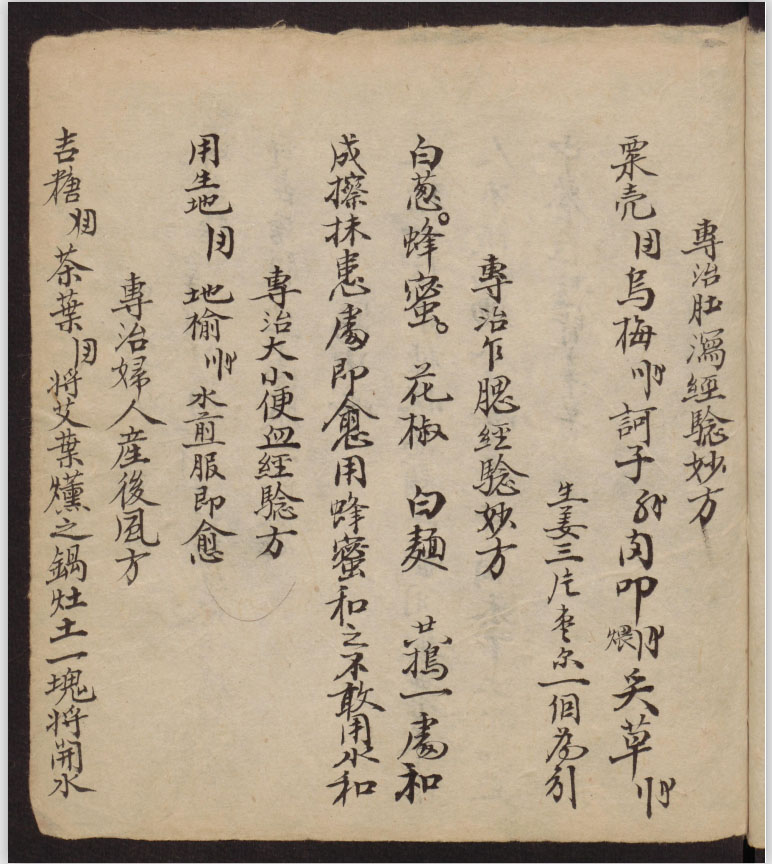 專治肚瀉經驗妙方
粟壳 烏梅 訶子 肉叩 煨 草
生姜三片枣尔一個為引
專治乍腮經驗妙方
白葱。蜂蜜。花椒 白麵 共搗一處和
成擦抹患處即愈用蜂蜜和之不敢用水和
專治大小便血經驗方
用生地 地榆 水煎服即愈
專治婦人産後風方
吉糖 茶葉 将艾葉燻之鍋灶土一塊将開水